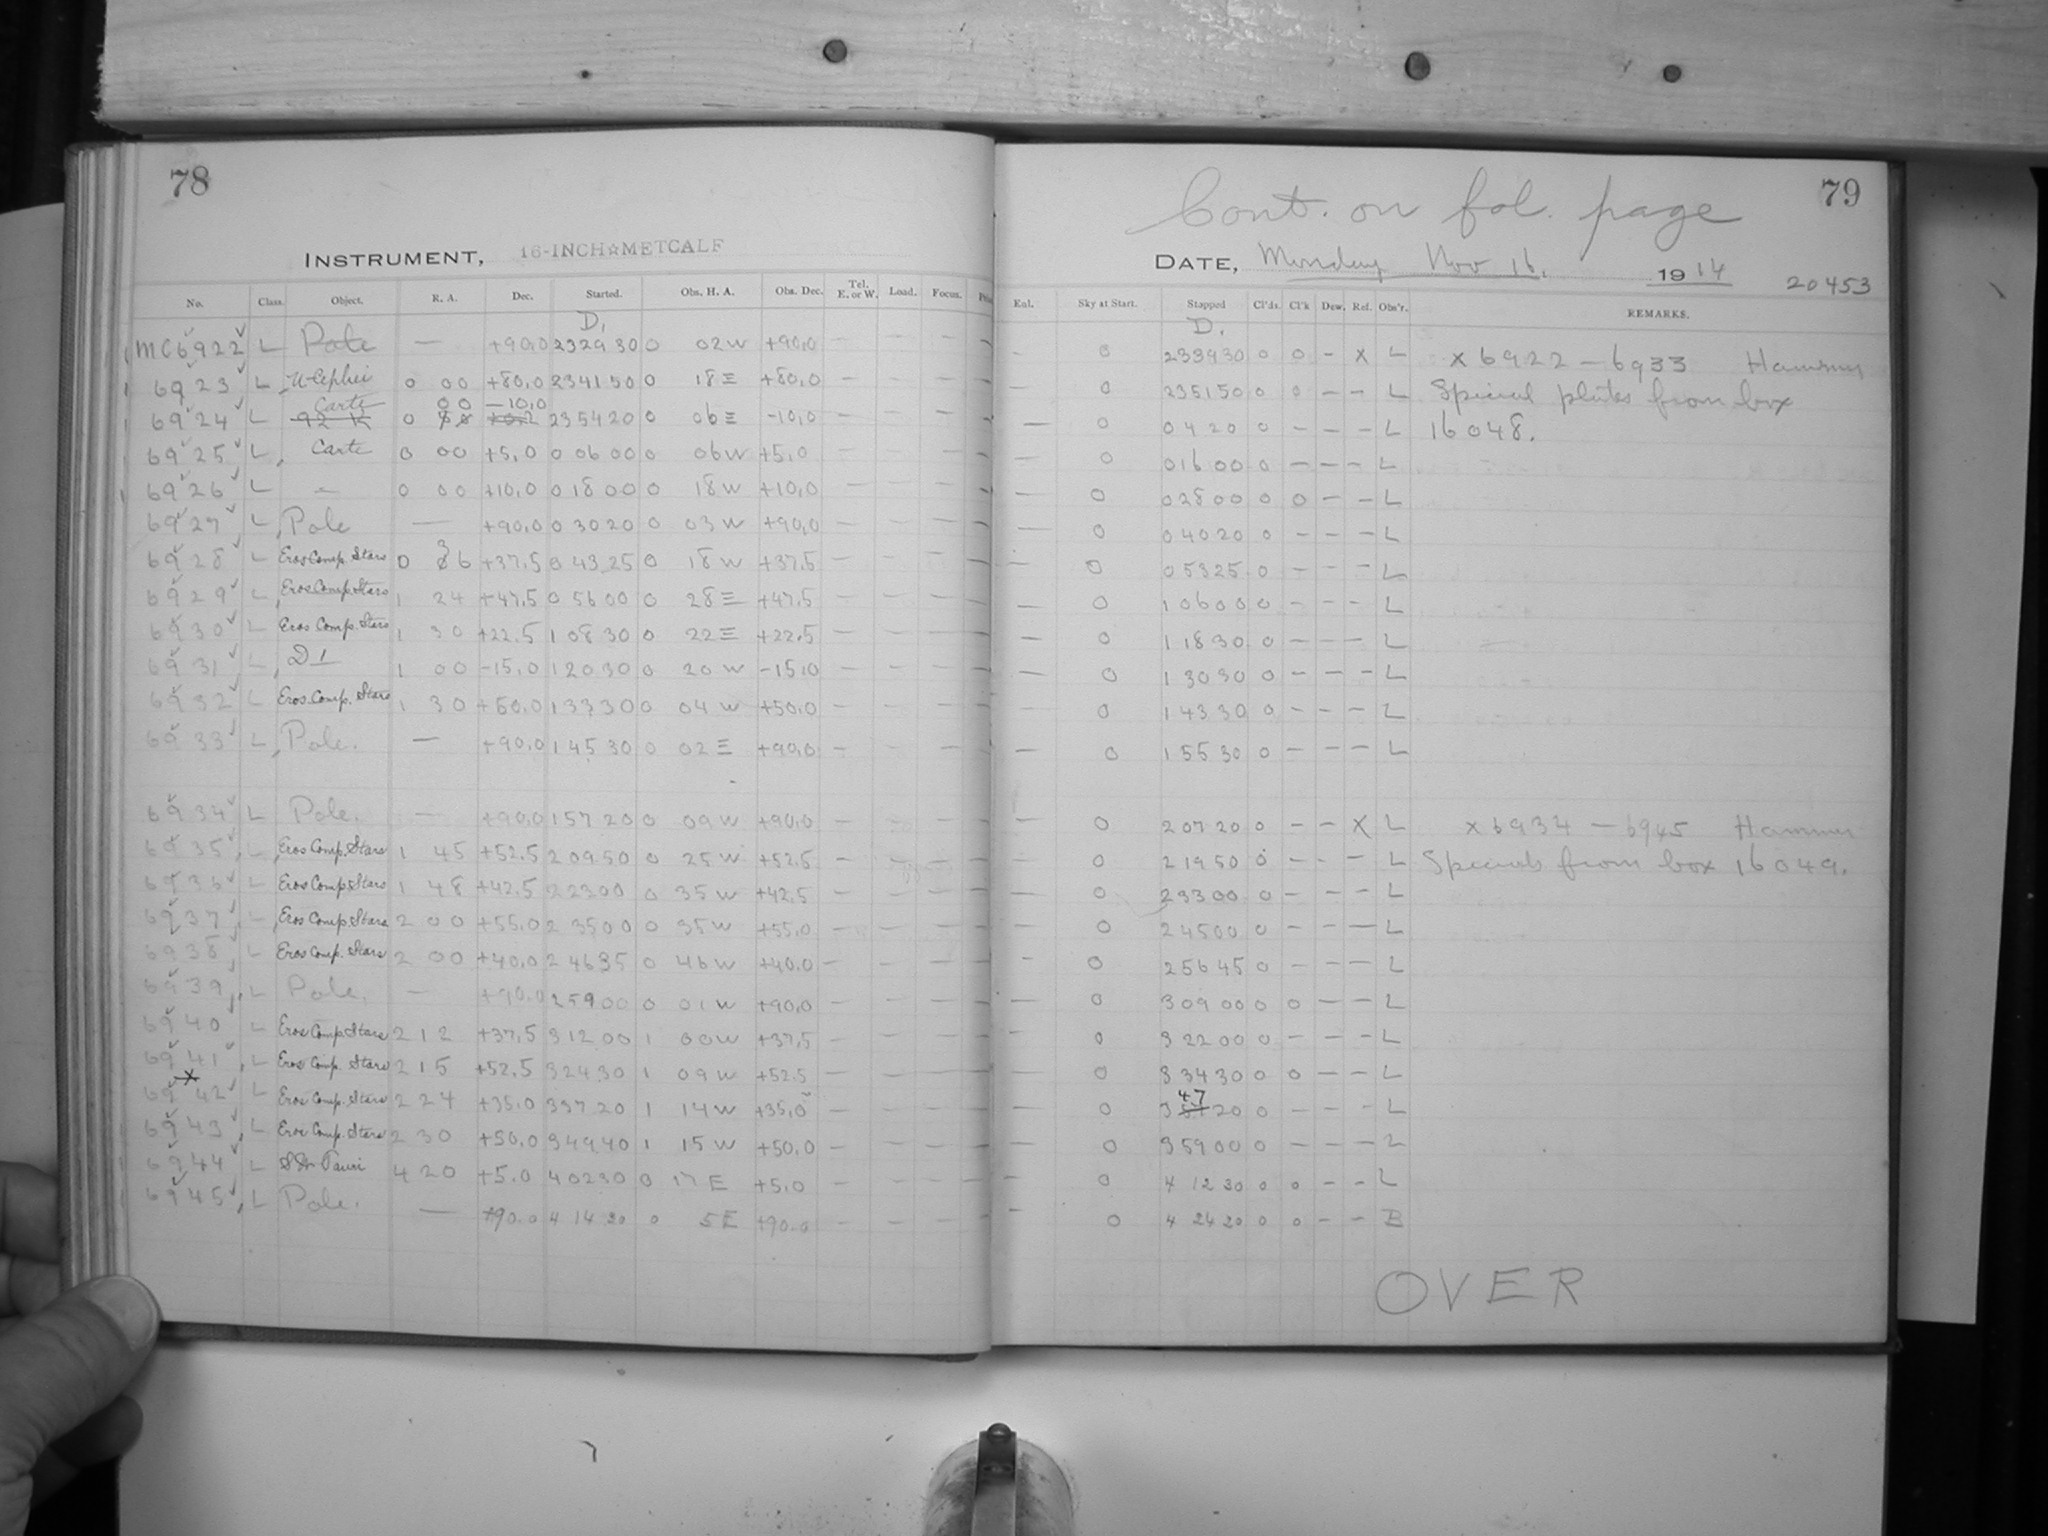 78
INSTRUMENT, 16-INCH☆METCALF
No. Class. Object. R. A. Dec. Started. Obs. H. A. Obs. Dec. Tel. E. or W. Load. Focus.
D.
MC6922 L Pole — +90,0 232930 0 02W +90,0 — — — —
6923 L U Cephei 0 00 +80,0 234150 0 18E +80,0 — — — —
Carte 00 -10,0
6924 L 92 K 0 +0.2 235420 0 06E -10,0 — — — —
6925 L Carte 0 00 +5,0 0 0600 0 06W +5,0 — — — —
6926 L - 0 00 +10,0 0 1800 0 18W +10,0 — — — —
6927 L Pole — +90,0 0 3020 0 03W +90,0 — — — —
6928 L Eros Comp. Stars 0 36 +37.5 0 4325 0 18W +37.5 — — — —
6929 L Eros Comp. Stars 1 24 +47.5 0 5600 0 28E +47.5 — — — —
6930 L Eros Comp. Stars 1 30 +22.5 1 0830 0 22E +22.5 — — — —
6931 L D1 1 00 -15,0 1 2030 0 20W -15,0 — — — —
6932 L Eros Comp. Stars 1 30 +50,0 1 3330 0 04W +50,0 — — — —
6933 L Pole. — +90,0 1 4530 0 02E +90,0 — — — —
6934 L Pole. — +90,0 1 5720 0 09W +90,0 — — — —
6935 L Eros Comp. Stars 1 45 +52.5 2 0950 0 25W +52.5 — — — —
6936 L Eros Comp. Stars 1 48 +42.5 2 2300 0 35W +42.5 — — — —
6937 L Eros Comp. Stars 2 00 +55,0 2 3500 0 35W +55,0 — — — —
6938 L Eros Comp. Stars 2 00 +40,0 2 4635 0 46W +40,0 — — — —
6939 L Pole. — +90,0 2 5900 0 01W +90,0 — — — —
6940 L Eros Comp. Stars 2 12 +37.5 3 1200 1 00W +37.5 — — — —
6941 L Eros Comp. Stars 2 15 +52.5 3 2430 1 09W +52.5 — — — —
x
6942 L Eros Comp. Stars 2 24 +35,0 3 3720 1 14W +35,0 — — — —
6943 L Eros Comp. Stars 2 30 +50,0 3 4940 1 15W +50,0 — — — —
6944 L Tauri 4 20 +5,0 4 0230 0 17E +5,0 — — — —
6945 L Pole. — +90.0 4 14 20 0 5E +90.0 — — — —
79
Cont. on fol. page
DATE, Monday Nov 16, 1914 20453
Sky at Start. Stopped Cl'ds. Cl'k Dew. Ref. Obs'r. REMARKS.
D.
- 0 233930 0 0 - X L x 6922 — 6933 Hammer
0 235150 0 0 - - L Special plates from box
— 0 0 4 20 0 - - - L 16048.
— 0 0 16 00 0 - - - L
— 0 0 28 00 0 0 - - L
— 0 0 40 20 0 - - - L
0 0 53 25 0 - - - L
— 0 1 06 00 0 - - - L
— 0 1 18 30 0 - - - L
— 0 1 30 30 0 - - - L
— 0 1 43 30 0 - - - L
— 0 1 55 30 0 - - - L
— 0 2 07 20 0 - - X L x 6934 — 6945 Hammer
— 0 2 19 50 0 - - - L Specials from box 16049.
— 0 2 33 00 0 - - - L
— 0 2 45 00 0 - - - L
— 0 2 56 45 0 - - - L
— 0 3 09 00 0 0 - - L
— 0 3 22 00 0 - - - L
— 0 3 34 30 0 0 - - L
— 0 3 47 20 0 - - - L
— 0 3 59 00 0 - - - L
— 0 4 12 30 0 0 - - L
- 0 4 24 20 0 0 - - B
OVER